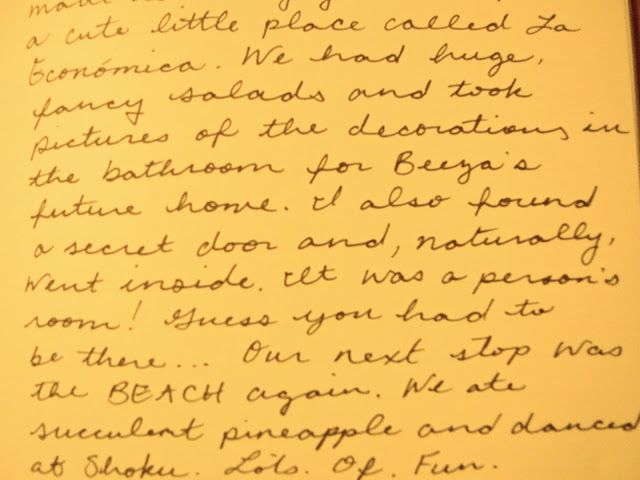 a cute little place called La
Económica. We had huge,
fancy salads and took
pictures of the decorations in
the bathroom for Beeza's
future home. I also found
a secret door and, naturally,
went inside. It was a person's
room! Guess you had to
be there... Our next stop was
the BEACH again. We ate
succulent pineapple and danced
at Shoku. Lots. Of. Fun.